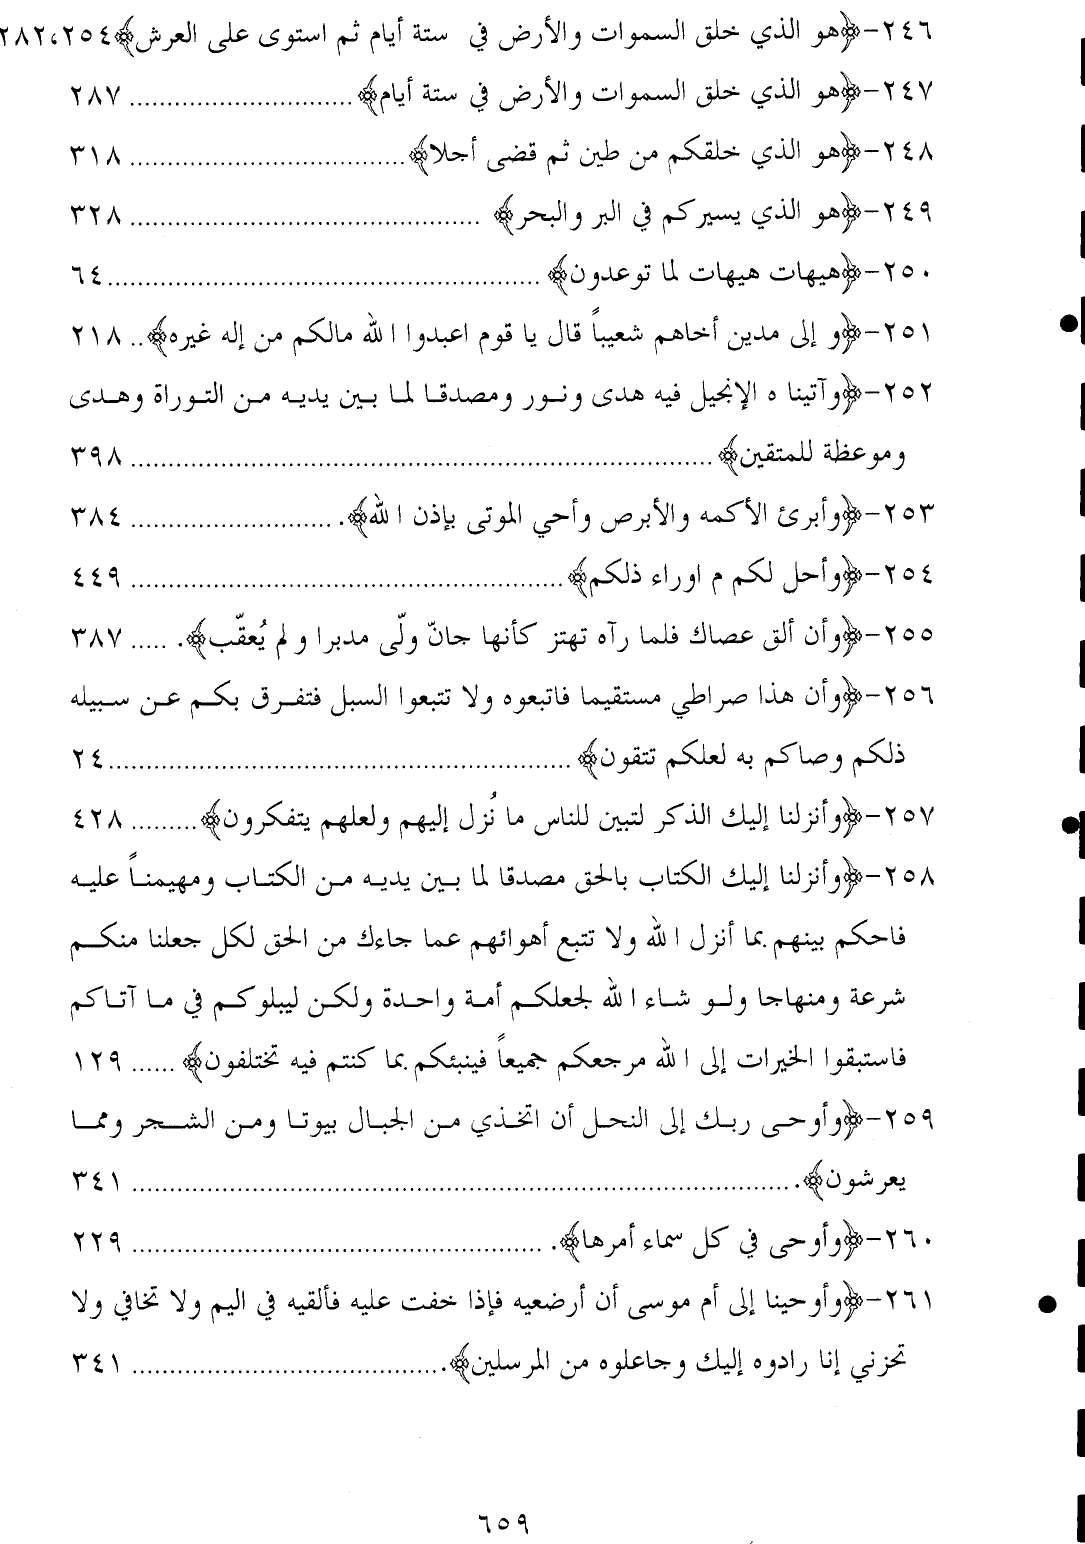 ٢٤٦-﴿هو الذي خلق السموات والأرض في ستة أيام ثم استوى على العرش﴾٢٨٢،٢٥٤
٢٤٧-﴿هو الذي خلق السموات والأرض في ستة أيام﴾.............................. ٢٨٧
٢٤٨-﴿هو الذي خلقكم من طين ثم قضى أجلا﴾..................................... ٣١٨
٢٤٩-﴿هو الذي يسيركم في البر والبحر﴾ ............................................... ٣٢٨
٢٥٠-﴿هيهات هيهات لما توعدون﴾..........................................................٦٤
٢٥١-﴿و إلى مدين أخاهم شعيباً قال يا قوم اعبدوا الله مالكم من إله غيره﴾.. ٢١٨
٢٥٢-﴿وآتينا ه الإنجيل فيه هدى ونور ومصدقا لما بين يديه من التوراة وهدى
وموعظة للمتقين﴾.............................................................................. ٣٩٨
٢٥٣-﴿وأبرئ الأكمه والأبرص وأحي الموتى بإذن الله﴾. ........................... ٣٨٤
٢٥٤-﴿وأحل لكم م اوراء ذلكم﴾.......................................................... ٤٤٩
٢٥٥-﴿وأن ألق عصاك فلما رآه تهتز كأنها جانّ ولّى مدبرا و لم يُعقّب﴾. ..... ٣٨٧
٢٥٦-﴿وأن هذا صراطي مستقيما فاتبعوه ولا تتبعوا السبل فتفرق بكم عن سبيله
ذلكم وصاكم به لعلكم تتقون﴾..............................................................٢٤
٢٥٧-﴿وأنزلنا إليك الذكر لتبين للناس ما نُزل إليهم ولعلهم يتفكرون﴾......... ٤٢٨
٢٥٨-﴿وأنزلنا إليك الكتاب بالحق مصدقا لما بين يديه من الكتاب ومهيمناً عليه
فاحكم بينهم بما أنزل الله ولا تتبع أهوائهم عما جاءك من الحق لكل جعلنا منكم
شرعة ومنهاجا ولو شاء الله لجعلكم أمة واحدة ولكن ليبلوكم في ما آتاكم
فاستبقوا الخيرات إلى الله مرجعكم جميعاً فينبئكم بما كنتم فيه تختلفون﴾ ...... ١٢٩
٢٥٩-﴿وأوحى ربك إلى النحل أن اتخذي من الجبال بيوتا ومن الشجر ومما
يعرشون﴾........................................................................................ ٣٤١
٢٦٠-﴿وأوحى في كل سماء أمرها﴾. ....................................................... ٢٢٩
٢٦١-﴿وأوحينا إلى أم موسى أن أرضعيه فإذا خفت عليه فألقيه في اليم ولا تخافي ولا
تحزني إنا رادوه إليك وجاعلوه من المرسلين﴾.......................................... ٣٤١
٦٥٩